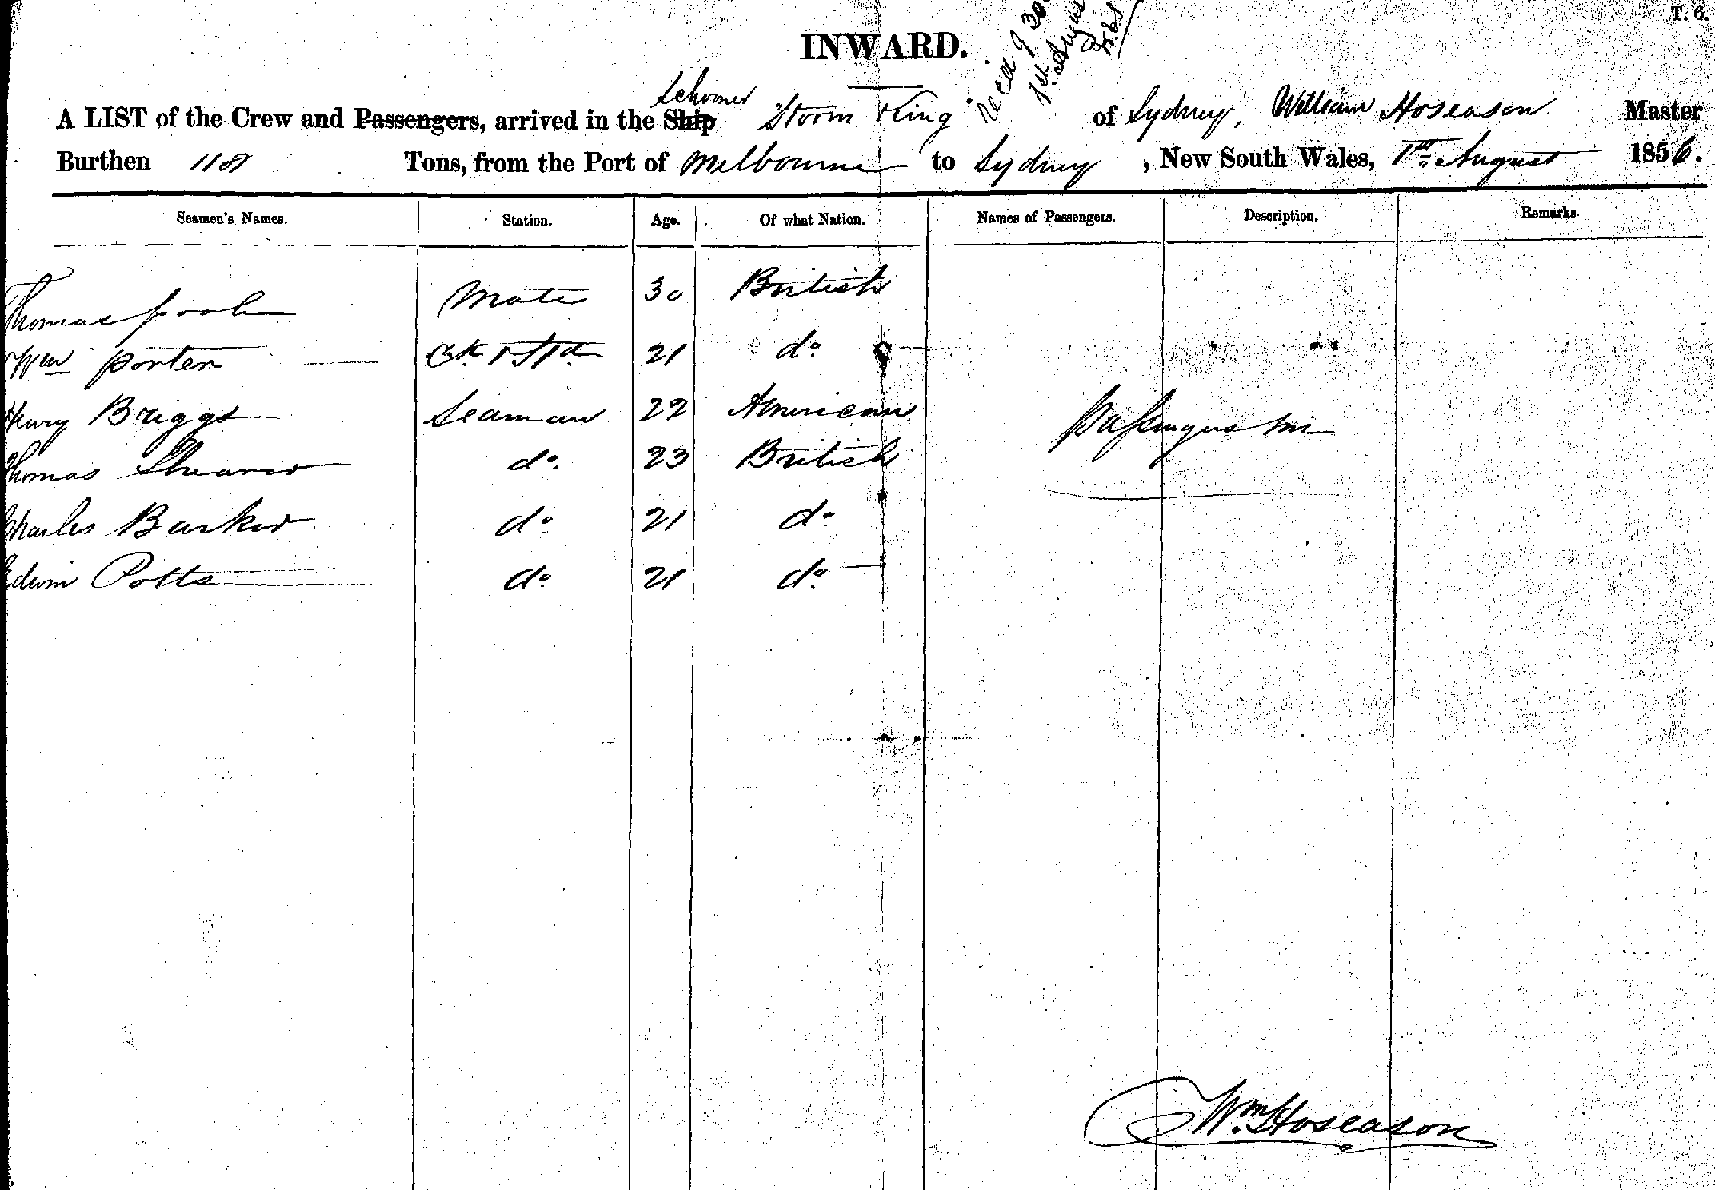 T. 6.
INWARD.
Recd 9 30
1st August
Schooner
A LIST of the Crew and Passengers, arrived in the Ship "Storm King" of Sydney, William Hoseason Master
Burthen 118 Tons, from the Port of Melbourne to Sydney, New South Wales, 1st August 1856.
Seamen's Names. Station. Age. Of what Nation. Names of Passengers. Description. Remarks.
Thomas Mate 30 British
Wm Porter Ck & Std 21 do
Henry Briggs Seaman 22 American
Passengers
Thomas Shearer do. 23 British
Charles Barker do 21 do
Edwin Potts do 21 do
Wm. Hoseason